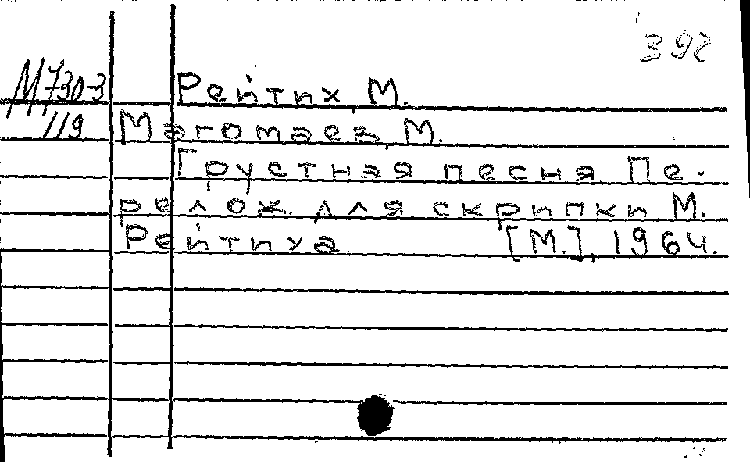 392
М730-3
119
Рейтих, М.
Магомаев, М.
Грустная песня Пе-
релож. для скрипки М.
Рейтиха [М.], 1964.